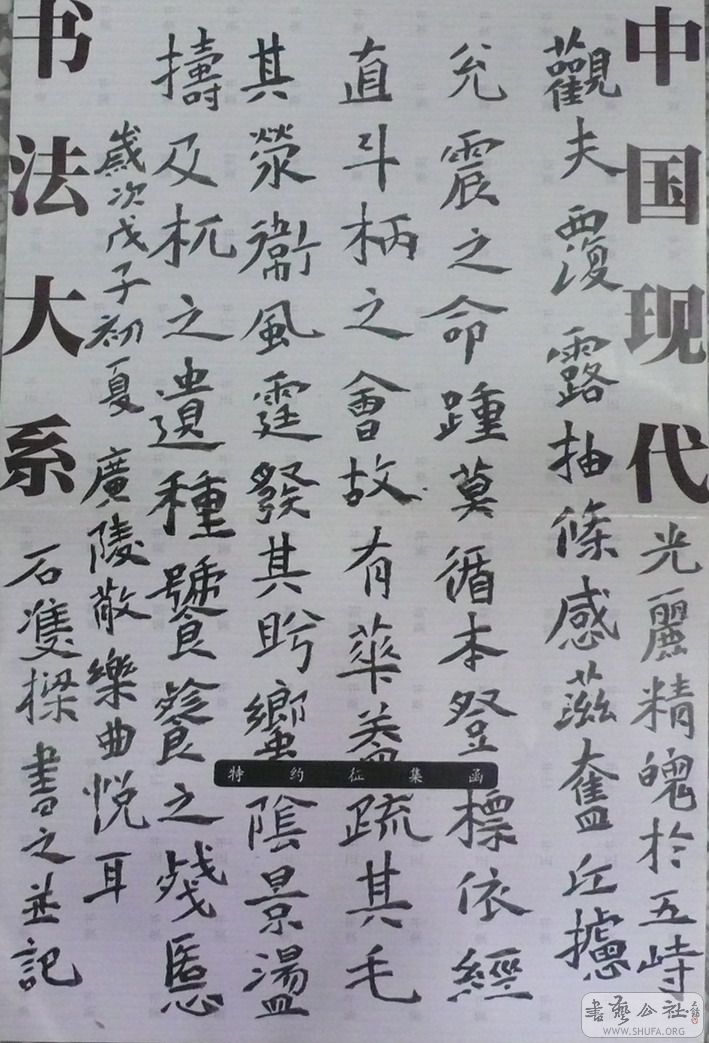 中国现代
书法大系
觀夫覆露抽條感蕬奮丘攄光麗精魄於五峙
允震之命踵莫循本登標依經
直斗柄之會故有華蓋疏其毛
其滎衞風霆發其盻蠁陰景盪
擣及杌之遺種饕餮之殘慝
歲次戊子初夏廣陵散樂曲悅耳
石隻樑書之並記
特约征集函
書藝公社
WWW.SHUFA.ORG